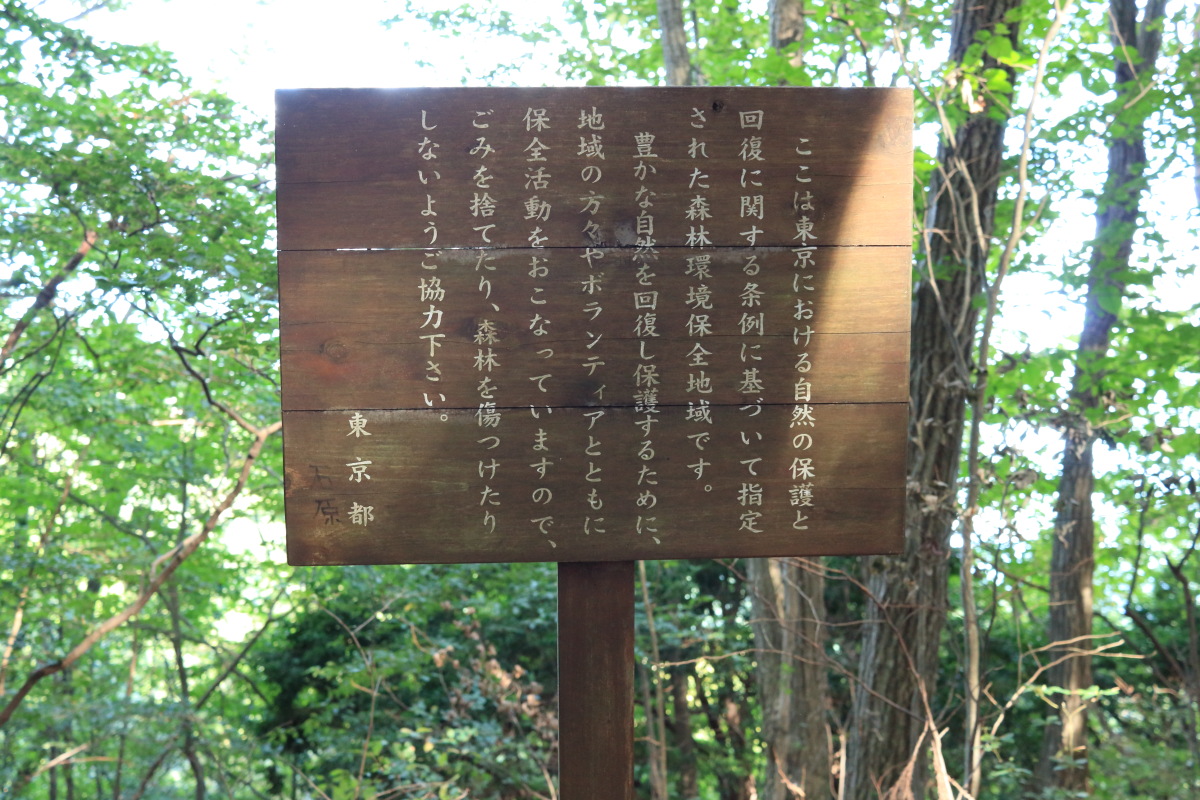 ここは東京における自然の保護と
回復に関する条例に基づいて指定
された森林環境保全地域です。
豊かな自然を回復し保護するために、
地域の方々やボランティアとともに
保全活動をおこなっていますので、
ごみを捨てたり、森林を傷つけたり
しないようご協力下さい。
東京都
石原